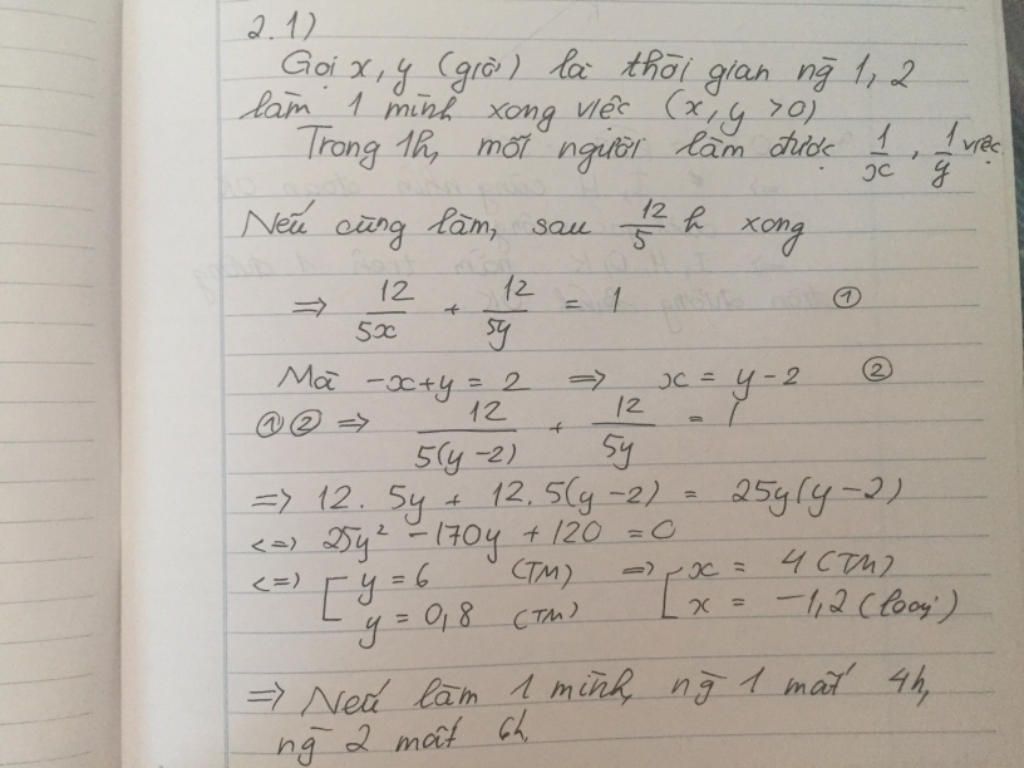 2.1)
Gọi x, y (giờ) là thời gian ng 1, 2
làm 1 mình xong việc (x, y > 0)
Trong 1h, mỗi người làm được 1/x, 1/y việc
Nếu cùng làm, sau 12/5 h xong
=> 12/5x + 12/5y = 1 ①
Mà -x+y = 2 => x = y-2 ②
①② => 12/5(y-2) + 12/5y = 1
=> 12. 5y + 12. 5(y-2) = 25y(y-2)
<=> 25y² - 170y + 120 = 0
<=> [ y = 6 (TM) => [ x = 4 (TM)
y = 0,8 (TM) x = -1,2 (loại)
=> Nếu làm 1 mình, ng 1 mất 4h,
ng 2 mất 6h.